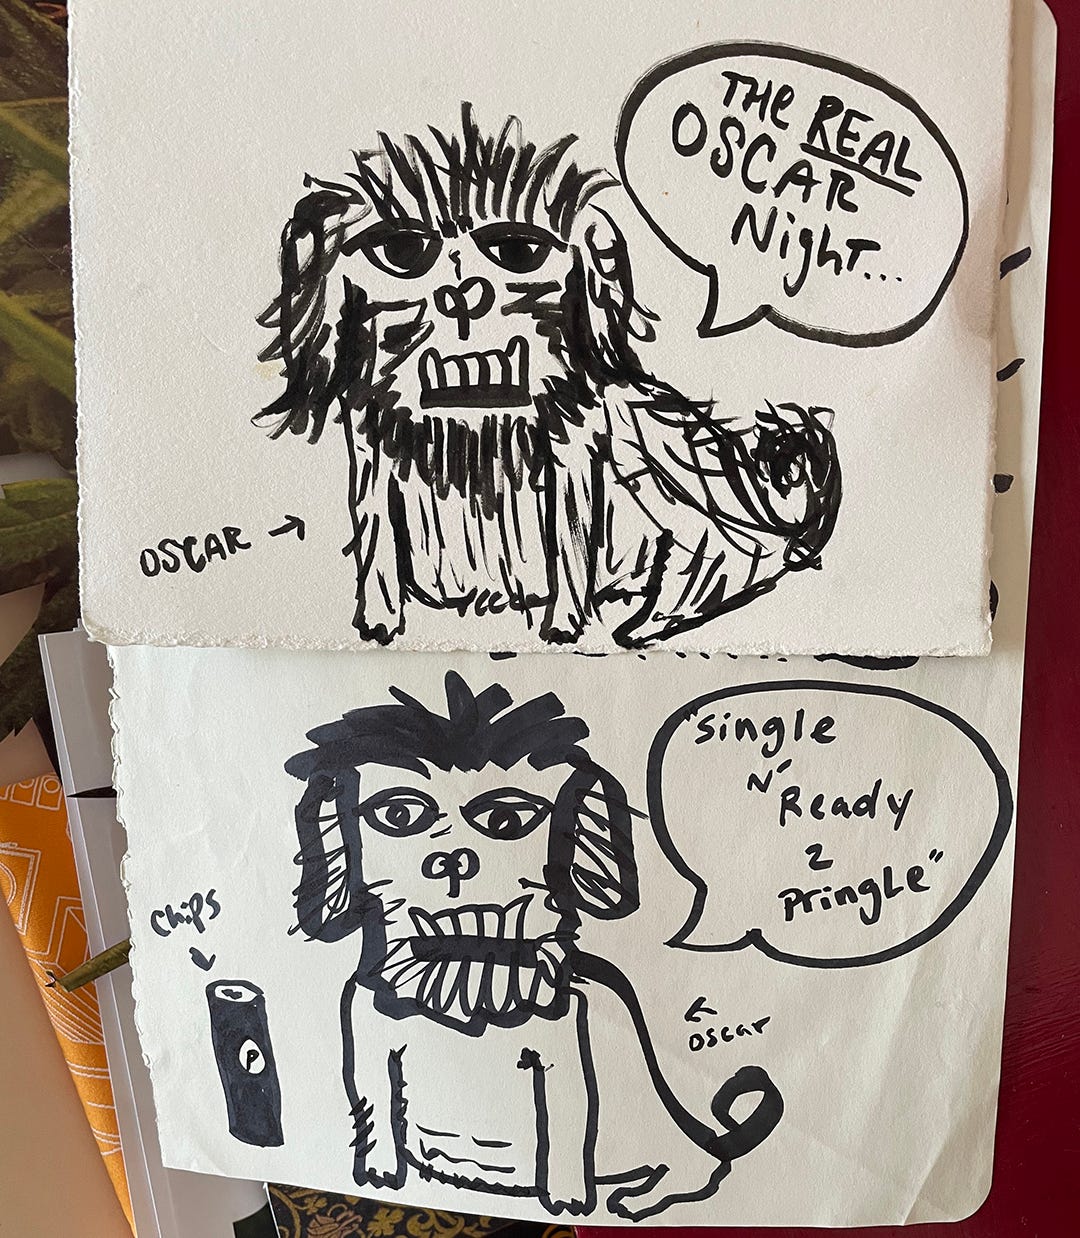 THE REAL
OSCAR
Night...
OSCAR →
"Single
N'
Ready
2
Pringle"
chips
P
oscar